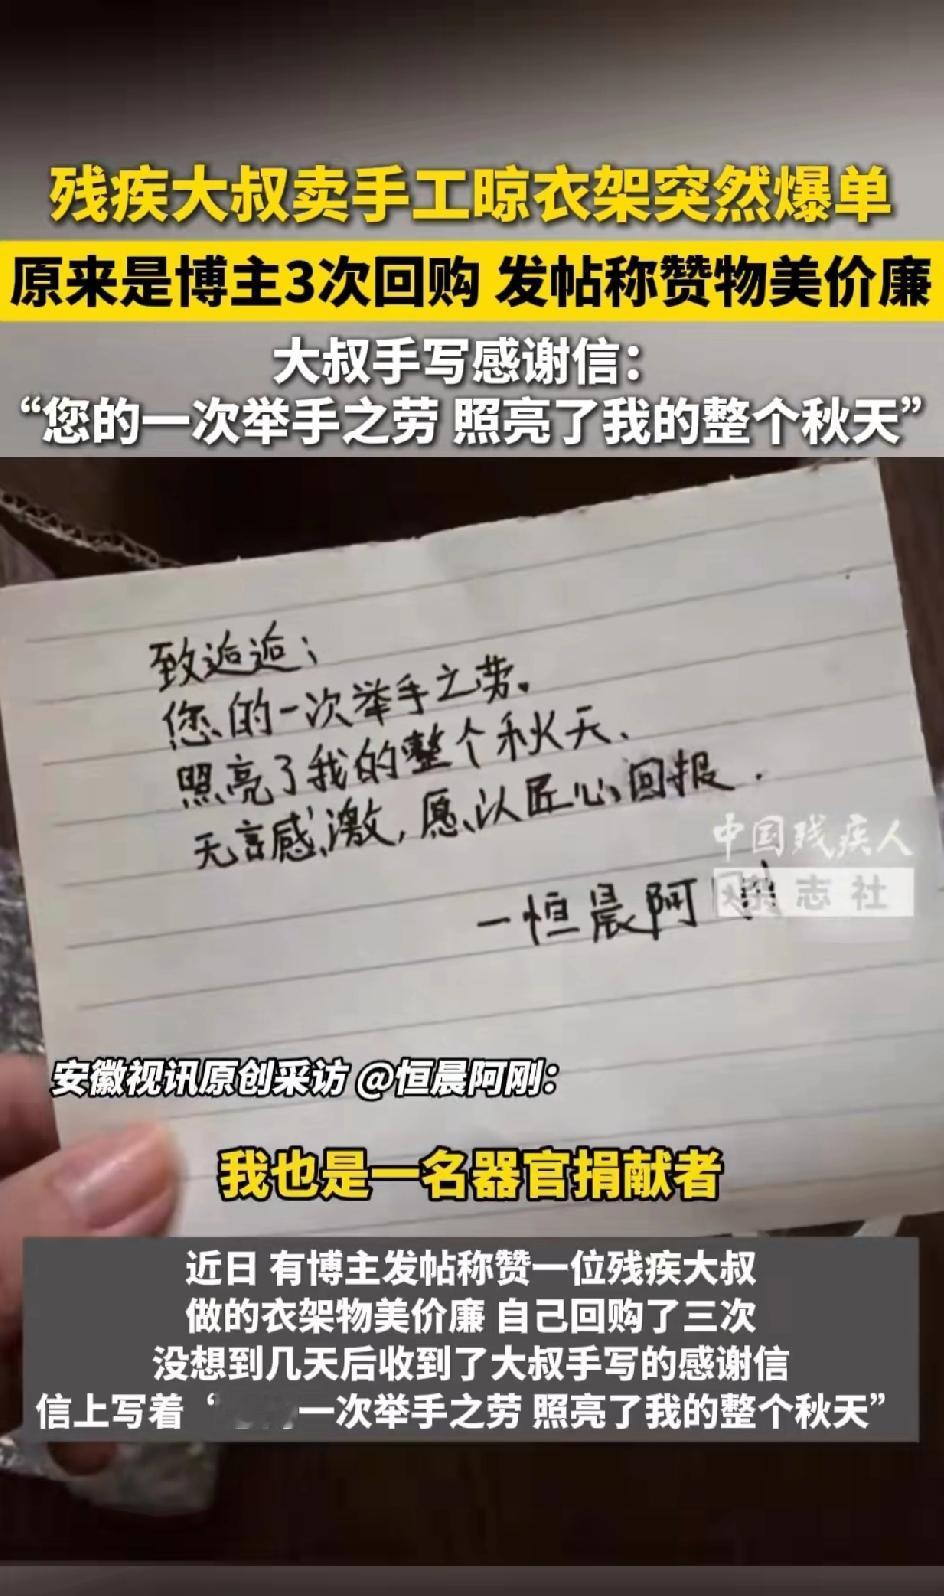 残疾大叔卖手工晾衣架突然爆单
原来是博主3次回购 发帖称赞物美价廉
大叔手写感谢信：
“您的一次举手之劳 照亮了我的整个秋天”
致逅逅；
您的一次举手之劳。
照亮了我的整个秋天、
无言感激，愿以匠心回报．
一恒晨阿
中国残疾人
杂志社
安徽视讯原创采访 @恒晨阿刚：
我也是一名器官捐献者
近日 有博主发帖称赞一位残疾大叔
做的衣架物美价廉 自己回购了三次
没想到几天后收到了大叔手写的感谢信
信上写着‘一次举手之劳 照亮了我的整个秋天”